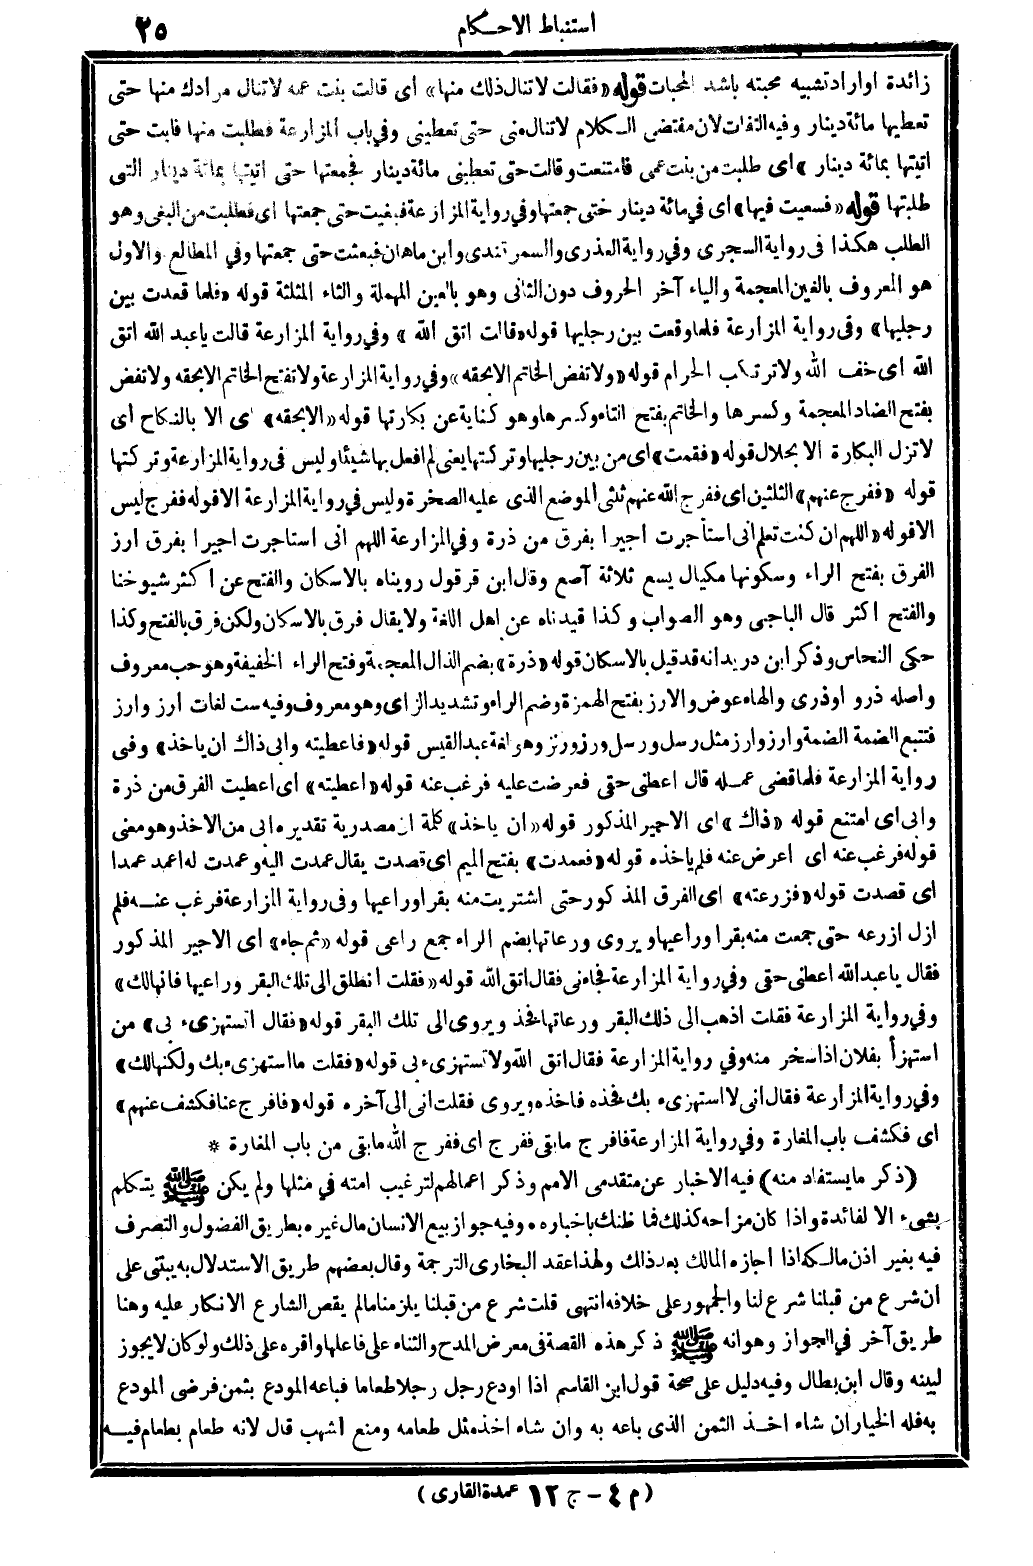 استنباط الاحكام
٢٥
زائدة او اراد تشبيه محبته باشد المحبات قوله «فقالت لا تنال ذلك منها» اى قالت بنت عمه لا تنال مرادك منها حتى
تعطيها مائة دينار وفيه التفات لان مقتضى الكلام لا تنال منى حتى تعطينى وفي باب المزارعة فطلبت منها فابت حتى
اتيتها بمائة دينار » اى طلبت من بنت عمى فامتنعت وقالت حتى تعطينى مائة دينار فجمعتها حتى اتيتها بمائة دينار التى
طلبتها قوله «فسعيت فيها» اى في مائة دينار حتى جمعتها وفي رواية المزارعة فبغيت حتى جمعتها اى فطلبت من البغى وهو
الطلب هكذا فى رواية السجزى وفي رواية العذرى والسمرقندى وابن ماهان فبعثت حتى جمعتها وفي المطالع والاول
هو المعروف بالغين المعجمة والياء آخر الحروف دون الثانى وهو بالعين المهملة والثاء المثلثة قوله «فلما قعدت بين
رجليها» وفى رواية المزارعة فلما وقعت بين رجليها قوله «قالت اتق الله » وفي رواية المزارعة قالت ياعبد الله اتق
الله اى خف الله ولا ترتكب الحرام قوله «ولا تفض الخاتم الا بحقه» وفي رواية المزارعة ولا تفتح الخاتم الا بحقه ولا تفض
بفتح الضاد المعجمة وكسرها والخاتم بفتح التاء وكسرها وهو كناية عن بكارتها قوله «الا بحقه» اى الا بالنكاح اى
لا تزل البكارة الا بحلال قوله «فقمت» اى من بين رجليها وتركتها يعنى لم افعل بها شيئا وليس فى رواية المزارعة وتركتها
قوله «ففرج عنهم» الثلثين اى ففرج الله عنهم ثلثى الموضع الذى عليه الصخرة وليس في رواية المزارعة الا قوله ففرج ليس
الا قوله «اللهم ان كنت تعلم انى استأجرت اجيرا بفرق من ذرة وفي المزارعة اللهم انى استاجرت اجيرا بفرق ارز
الفرق بفتح الراء وسكونها مكيال يسع ثلاثة آصع وقال ابن قرقول رويناه بالاسكان والفتح عن اكثر شيوخنا
والفتح اكثر قال الباجى وهو الصواب وكذا قيدناه عن اهل اللغة ولا يقال فرق بالاسكان ولكن فرق بالفتح وكذا
حكى النحاس وذكر ابن دريد انه قد قيل بالاسكان قوله «ذرة» بضم الذال المعجمة وفتح الراء الخفيفة وهو حب معروف
واصله ذرو او ذرى والهاء عوض والارز بفتح الهمزة وضم الراء وتشديد الزاى وهو معروف وفيه ست لغات ارز وارز
فتتبع الضمة الضمة وارز وارز مثل رسل ورسل ورز ورنز وهو لغة عبد القيس قوله «فاعطيته وابى ذاك ان ياخذ» وفى
رواية المزارعة فلما قضى عمله قال اعطنى حقى فعرضت عليه فرغب عنه قوله «اعطيته» اى اعطيت الفرق من ذرة
وابى اى امتنع قوله «ذاك» اى الاجير المذكور قوله «ان ياخذ» كلمة ان مصدرية تقديره ابى من الاخذ وهو معنى
قوله فرغب عنه اى اعرض عنه فلم ياخذه قوله «فعمدت» بفتح الميم اى قصدت يقال عمدت اليه وعمدت له اعمد عمدا
اى قصدت قوله «فزرعته» اى الفرق المذكور حتى اشتريت منه بقرا وراعيها وفى رواية المزارعة فرغب عنه فلم
ازل ازرعه حتى جمعت منه بقرا وراعيها ويروى ورعاتها بضم الراء جمع راعى قوله «ثم جاء» اى الاجير المذكور
فقال ياعبد الله اعطنى حقى وفي رواية المزارعة فجاءنى فقال اتق الله قوله «فقلت انطلق الى تلك البقر وراعيها فانها لك»
وفي رواية المزارعة فقلت اذهب الى ذلك البقر ورعاتها فخذ ويروى الى تلك البقر قوله «فقال اتستهزىء بى» من
استهزأ بفلان اذا سخر منه وفي رواية المزارعة فقال اتق الله ولا تستهزىء بى قوله «فقلت ما استهزىء بك ولكنها لك»
وفي رواية المزارعة فقال انى لا استهزىء بك فخذه فاخذه ويروى فقلت انى الى آخره قوله «فافرج عنا فكشف عنهم»
اى فكشف باب المغارة وفي رواية المزارعة فافرج ما بقى ففرج اى ففرج الله ما بقى من باب المغارة *
(ذكر ما يستفاد منه) فيه الاخبار عن متقدمى الامم وذكر اعمالهم لترغيب امته في مثلها ولم يكن ﷺ يتكلم
بشىء الا لفائدة واذا كان مزاحه كذلك فما ظنك باخباره وفيه جواز بيع الانسان مال غيره بطريق الفضول والتصرف
فيه بغير اذن مالكه اذا اجازه المالك بعد ذلك ولهذا عقد البخارى الترجمة وقال بعضهم طريق الاستدلال به يبتنى على
ان شرع من قبلنا شرع لنا والجمهور على خلافه انتهى قلت شرع من قبلنا يلزمنا مالم يقص الشارع الانكار عليه وهنا
طريق آخر في الجواز وهو انه ﷺ ذكر هذه القصة فى معرض المدح والثناء على فاعلها واقره على ذلك ولو كان لا يجوز
لبينه وقال ابن بطال وفيه دليل على صحة قول ابن القاسم اذا اودع رجل رجلا طعاما فباعه المودع بثمن فرضى المودع
به فله الخيار ان شاء اخذ الثمن الذى باعه به وان شاء اخذ مثل طعامه ومنع اشهب قال لانه طعام بطعام فيه
(م ٤ - ج ١٢ عمدة القارى)